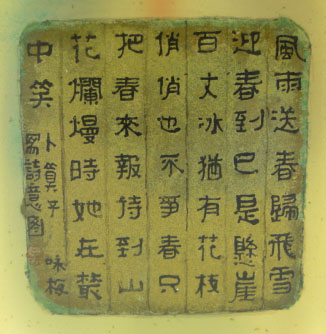 風雨送春歸飛雪
迎春到已是懸崖
百丈冰猶有花枝
俏俏也不爭春只
把春來報待到山
花爛熳時她在叢
中笑
卜算子 咏梅
詩意圖